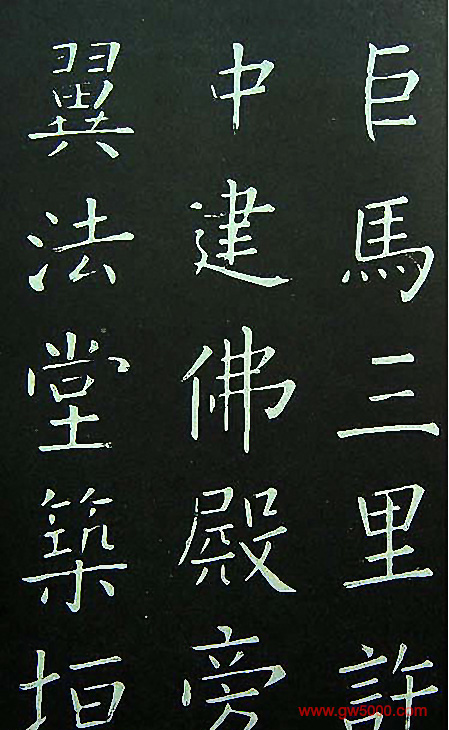 巨馬三里許
中建佛殿旁
翼法堂築垣
www.gw5000.com